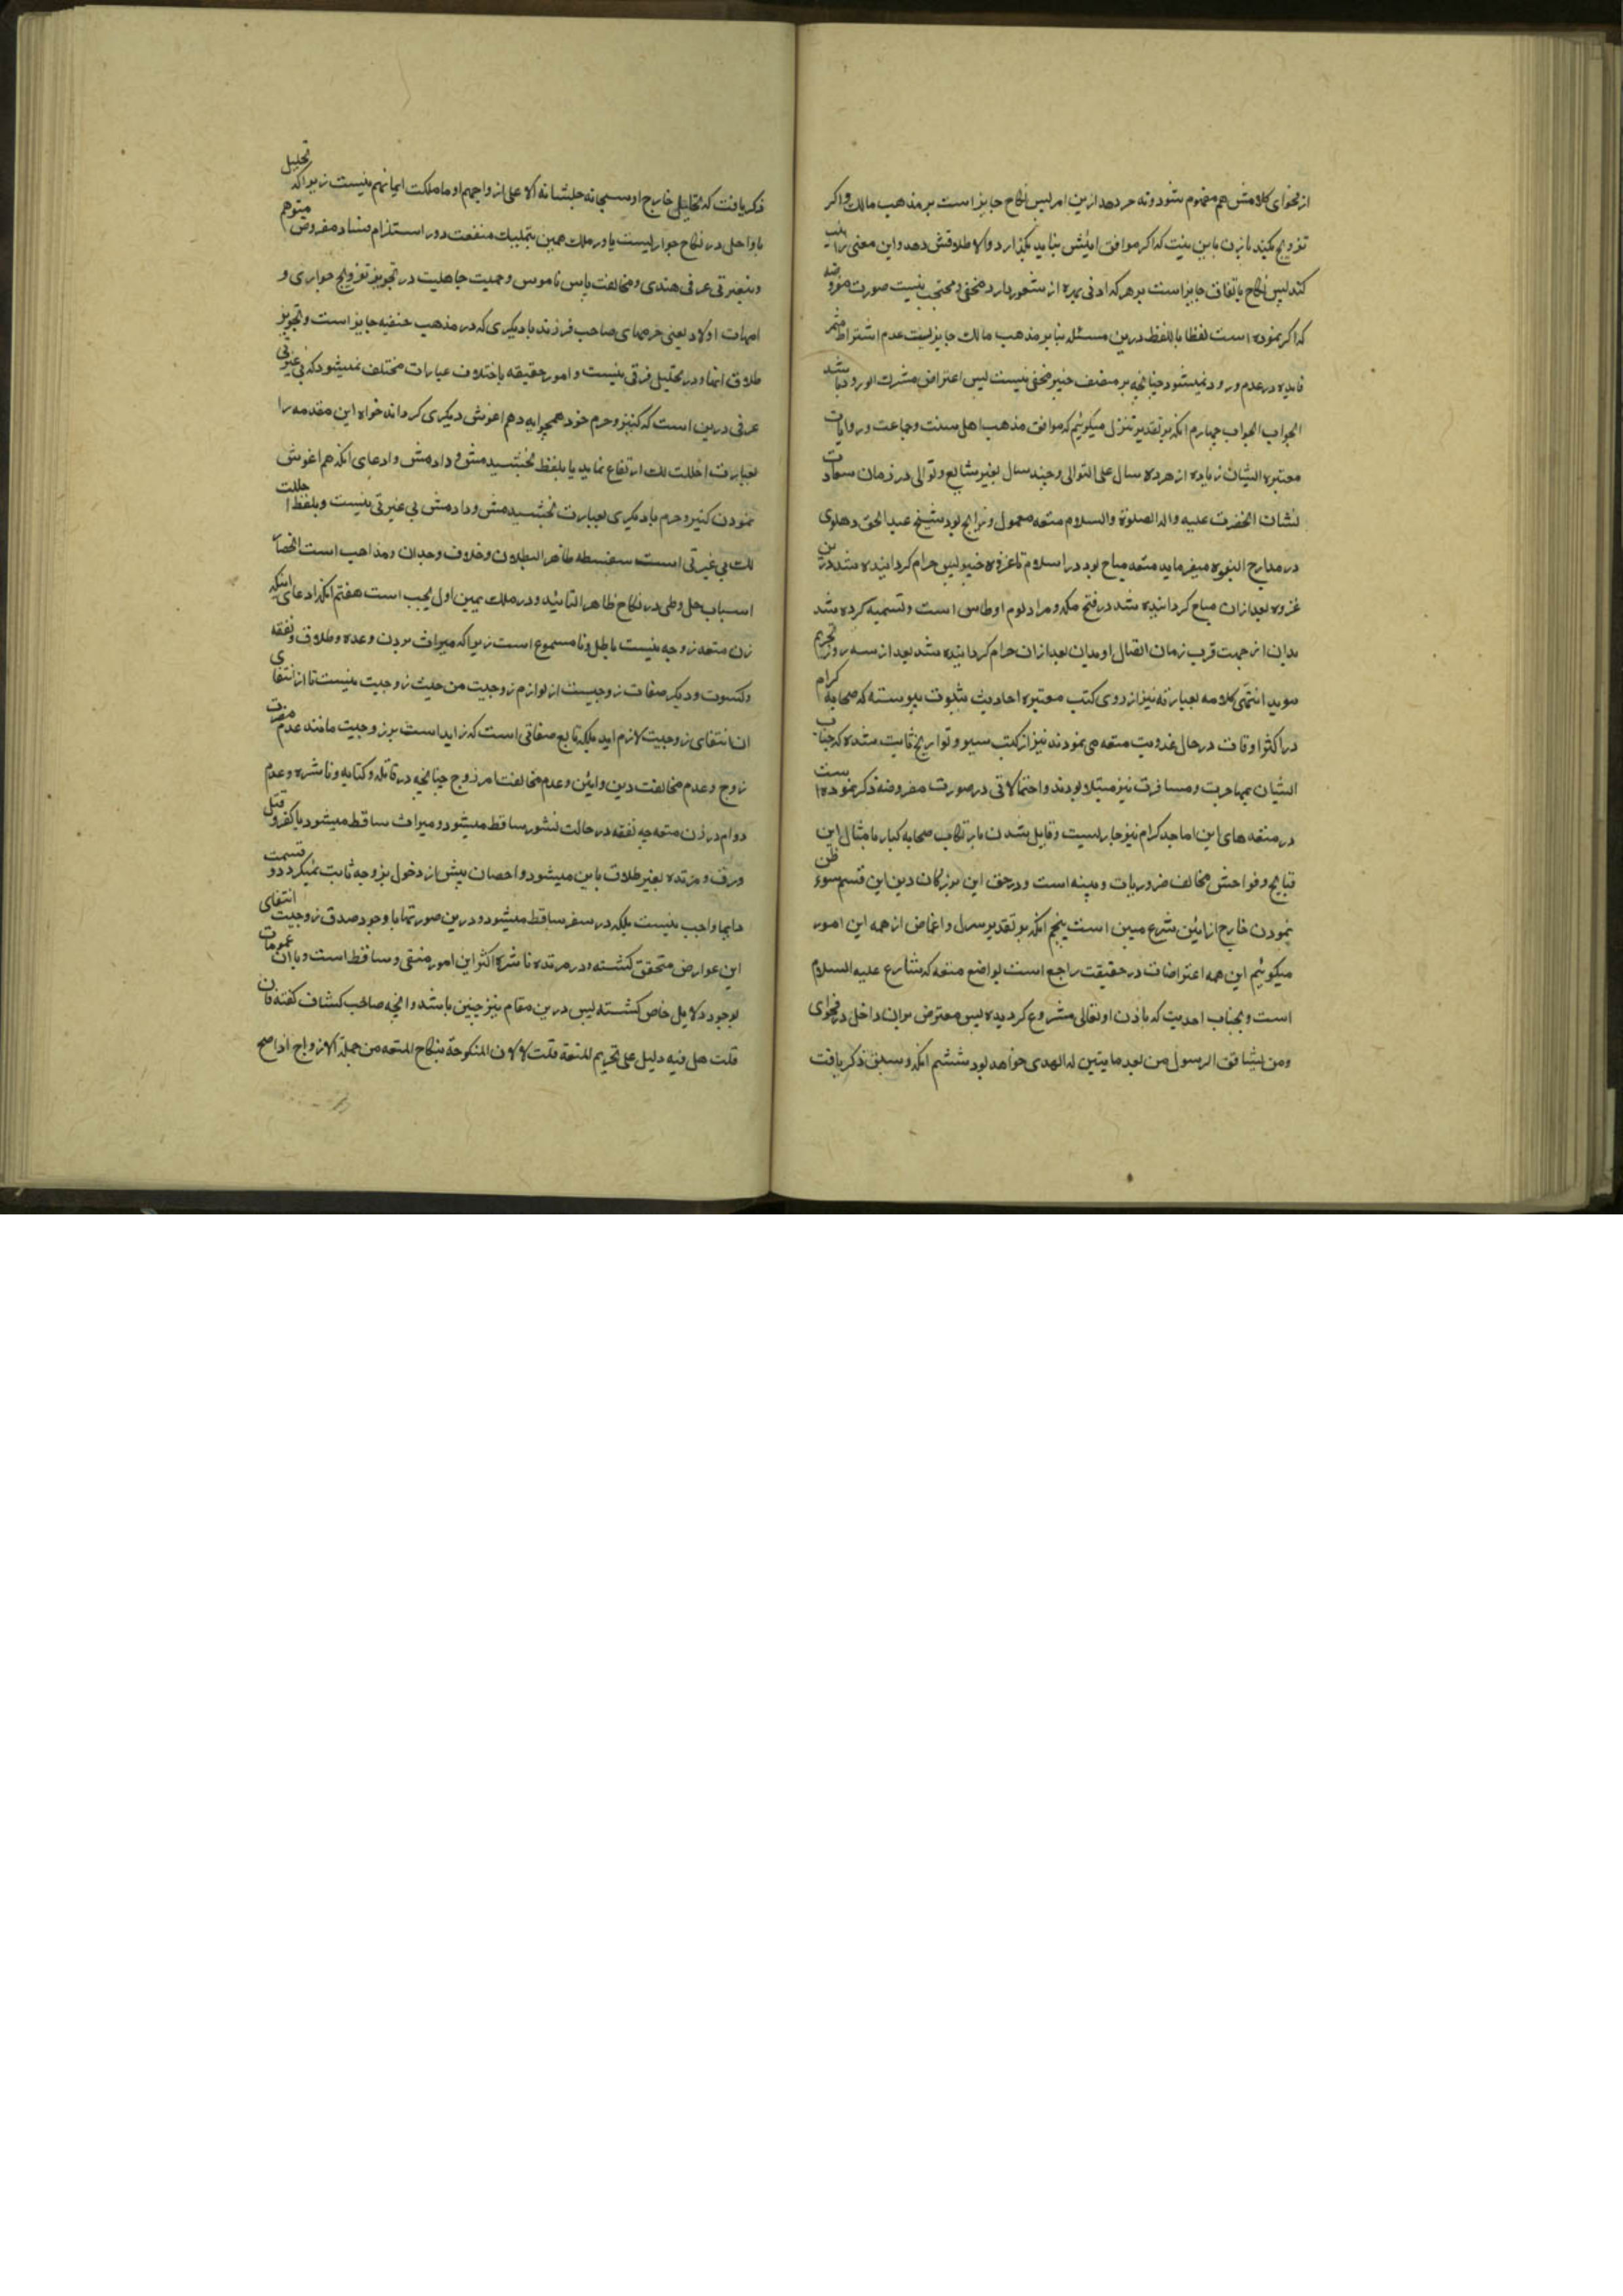 از فحوای کلامش هم مفهوم شود ونه حر دهد ازین امر پس نکاح جایز است بر مذهب مالک واکر
تزویج بکند با زن باین نیت که اکر موافق ایتش نیاید بکذارد والا طلاقش دهد واین معنی را نیت
کند پس نکاح باتفاق جایز است بر هر که ادنی بهره از شعور دارد مخفی ومحتجب نیست صورت مفروضه
که ذکر نموده است لفظا باللفظ درین مسئله بنا بر مذهب مالک جایز نیست عدم اشتراط مثمر
فایده در عدم ورود نمیشود چنانچه بر منصف خبیر مخفی نیست پس اعتراض مشترک الورود باشد
الجواب الجواب چهارم انکه بر تقدیر تنزل میکوئیم که موافق مذهب اهل سنت وجماعت وروایات
معتبره ایشان زیاده از هرده سال علی التوالی وچند سال بغیر شایع وتوالی در زمان سعادت
نشان انحضرت علیه واله الصلوة والسلام متعه معمول ورایج بود شیخ عبد الحق دهلوی
در مدارج النبوه میفرماید متعه مباح بود در اسلام تا غزوه خیبر پس حرام کردانیده شد درین
غزوه بعد ازان مباح کردانیده شد در فتح مکه ومراد یوم اوطاس است وتسمیه کرده شد
بدان از جهت قرب زمان اتصال او بدان بعد ازان حرام کردانیده شد بعد از سه روز تحریم
موبد انتهی کلامه بعبارته نیز از روی کتب معتبره احادیث بثبوت پیوسته که صحابه کرام
در اکثر اوقات در حال غدوبت متعه می نمودند نیز از کتب سیر وتواریخ ثابت شده که جناب
ایشان بمهاجرت ومسافرت نیز مبتلا بودند واحتمالاتی در صورت مفروضه ذکر نموده است
در متعه های این اماجد کرام نیز جاریست وقایل شدن بارتکاب صحابه کبار بامثال این
قبایح وفواحش مخالف ضروریات دینیه است ودر حق این بزرکان دین این قسم سوء ظن
نمودن خارج از ائین شرع مبین است پنجم انکه بر تقدیر سهل واغماض از همه این امور
میکوئیم این همه اعتراضات در حقیقت راجع است بواضع متعه که شارع علیه السلام
است وبجناب احدیت که باذن او تعالی مشروع کردیده پس معترض بران داخل در فحوای
ومن یشاقق الرسول من بعد ما یتبین له الهدی خواهد بود ششم انکه وسبق ذکر یافت
ذکر یافت که تحلیل خارج او سبحانه جلشانه الا علی ازواجهم او ما ملکت ایمانهم نیست زیرا که تحلیل
یا داخل در نکاح جواریست یا در ملک یمین بتملیک منفعت دور استلزام فساد مفروض متوهم
وبیغیرتی عرفی هندی ومخالفت پاس ناموس وحمیت جاهلیت در تجویز تزویج جواری و
امهات اولاد یعنی حرمهای صاحب فرزند با دیکری که در مذهب حنفیه جایز است وتجویز
طلاق انها ودر تحلیل فرقی نیست وامور حقیقه باختلاف عبارات مختلف نمیشود که بی غیرتی
عرفی درین است که کنیز وحرم خود همچرابه دهم اغوش دیکری کرداند خواه این مقدمه را
بعبارت احللت لک ارتفاع نماید یا بلفظ بخشیدمش ودادمش وادعای انکه هم اغوش
نمودن کنیز وحرم با دیکری بعبارت بخشیدمش ودادمش بی غیرتی نیست وبلفظ احللت
لک بی غیرتی است سفسطه ظاهر البطلان وخلاف وجدان ومذاهب است
اسباب حل وطی در نکاح ظاهر التائید ودر ملک یمین اول یجب است هفتم انکه ادعای اینکه
زن متعه زوجه نیست باطل ونا مسموع است زیرا که میراث بردن وعده وطلاق ونفقه
وکسوت ودیکر صفات زوجیت از لوازم زوجیت من حیث زوجیت نیست تا از انتفای
ان انتفای زوجیت لازم اید بلکه تابع صفاتی است که زاید است بر زوجیت مانند عدم
زوج وعدم مخالفت دین وایین وعدم مخالفت امر زوج چنانچه در قاتله وکتابیه وناشزه وعدم
دوام در زن متعه چه نفقه در حالت نشوز ساقط میشود ومیراث ساقط میشود بکفر وقتل
ورق ومرتده بغیر طلاق باین میشود واحصان پیش از دخول بزوجه ثابت نمیکردد وقسمت
دایما واجب نیست بلکه در سفر ساقط میشود ودرین صورتها با وجود صدق زوجیت انتفای
این عوارض متحقق کشته ودر مرتده ناشزه اکثر این امور منتفی وساقط است وبا ان عمومات
بوجود دلایل خاص کشته پس درین مقام نیز چنین باشد وانچه صاحب کشاف کفته فان
قلت هل فیه دلیل علی تحریم المتعة قلت لا لان المنکوحة بنکاح المتعه من جملة الازواج اذا صح